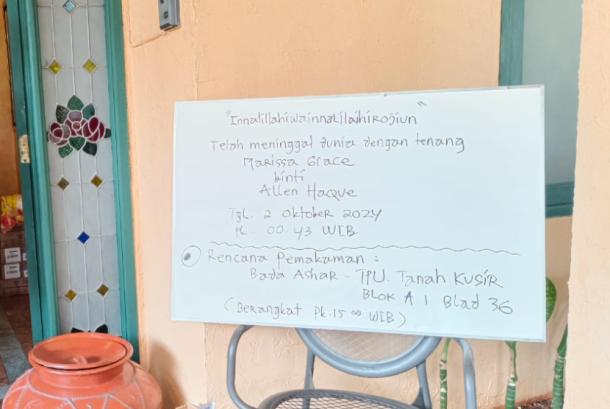 "Innalillahiwainnalilaihirojiun"
Telah meninggal dunia dengan tenang
Marissa Grace
binti
Allen Haque
Tgl. 2 Oktober 2024
Pk. 00.43 WIB.
Rencana Pemakaman :
Bada Ashar - TPU. Tanah Kusir
BLOK A 1 Blad 36
(Berangkat Pk. 15 00 WIB)